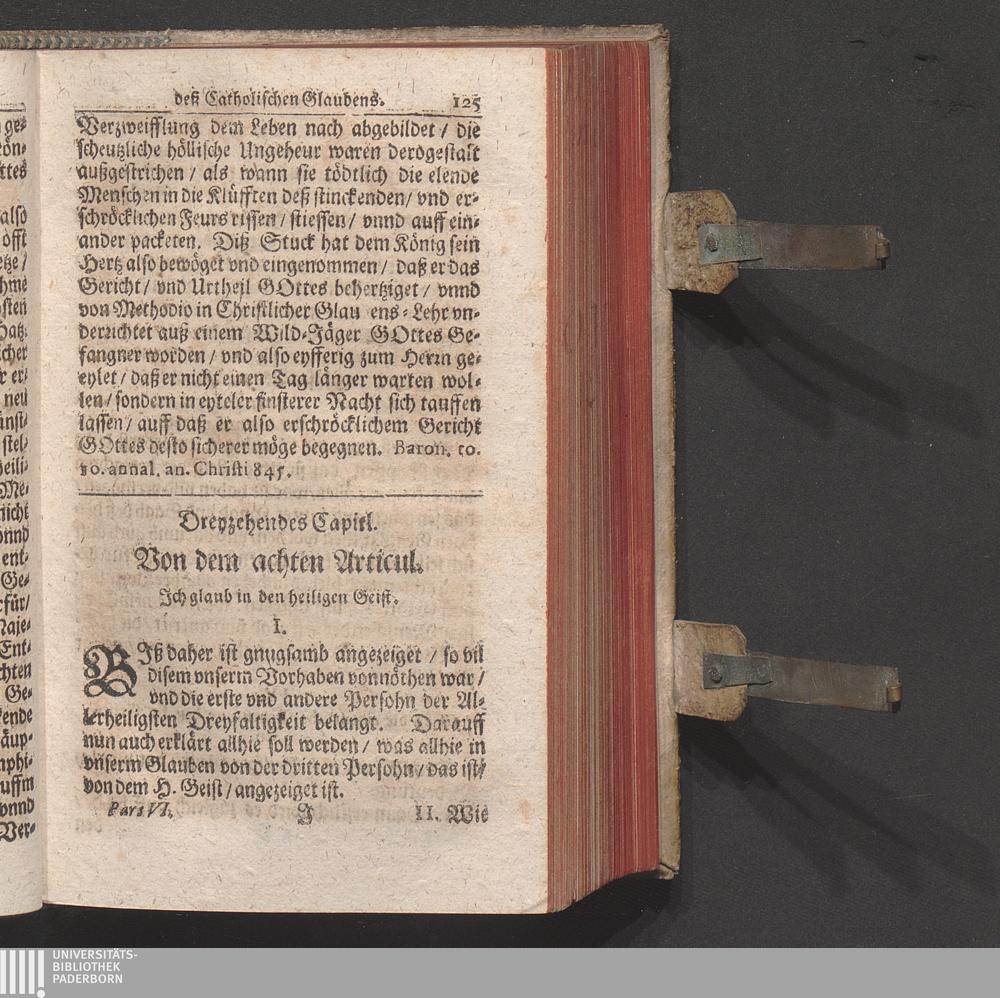 deß Catholischen Glaubens. 125
Verzweifflung dem Leben nach abgebildet / die
scheutzliche höllische Ungeheur waren derogestalt
außgestrichen / als wann sie tödtlich die elende
Menschen in die Klüfften deß stinckenden / vnd er-
schröcklichen Feurs rissen / stiessen / vnnd auff ein-
ander packeten. Diß Stuck hat dem König sein
Hertz also bewöget vnd eingenommen / daß er das
Gericht / vnd Urtheil GOttes behertziget / vnnd
von Methodio in Christlicher Glau ens-Lehr vn-
derrichtet auß einem Wild-Jäger GOttes Ge-
fangner worden / vnd also eyfferig zum Herrn ge-
eylet / daß er nicht einen Tag länger warten wol-
len / sondern in eyteler finsterer Nacht sich tauffen
lassen / auff daß er also erschröcklichem Gericht
GOttes desto sicherer möge begegnen. Baron. to.
10. annal. an. Christi 845.
Dreyzehendes Capitl.
Von dem achten Articul.
Ich glaub in den heiligen Geist.
I.
BIß daher ist gnugsamb angezeiget / so vil
disem vnserm Vorhaben vonnöthen war /
vnd die erste vnd andere Persohn der Al-
lerheiligsten Dreyfaltigkeit belangt. Darauff
nun auch erklärt allhie soll werden / was allhie in
vnserm Glauben von der dritten Persohn / das ist /
von dem H. Geist / angezeiget ist.
Pars VI. J II. Wie
ge-
kön-
ttes
also
öfft
etze /
hme
sten
icher
r er-
neu
stel-
heili-
Me-
nicht
vnnd
ent-
Ge-
rfür /
Maje-
Ent-
chten
Ge-
kende
täup-
mphi-
uffm
vnnd
Ver-
UNIVERSITÄTS-
BIBLIOTHEK
PADERBORN